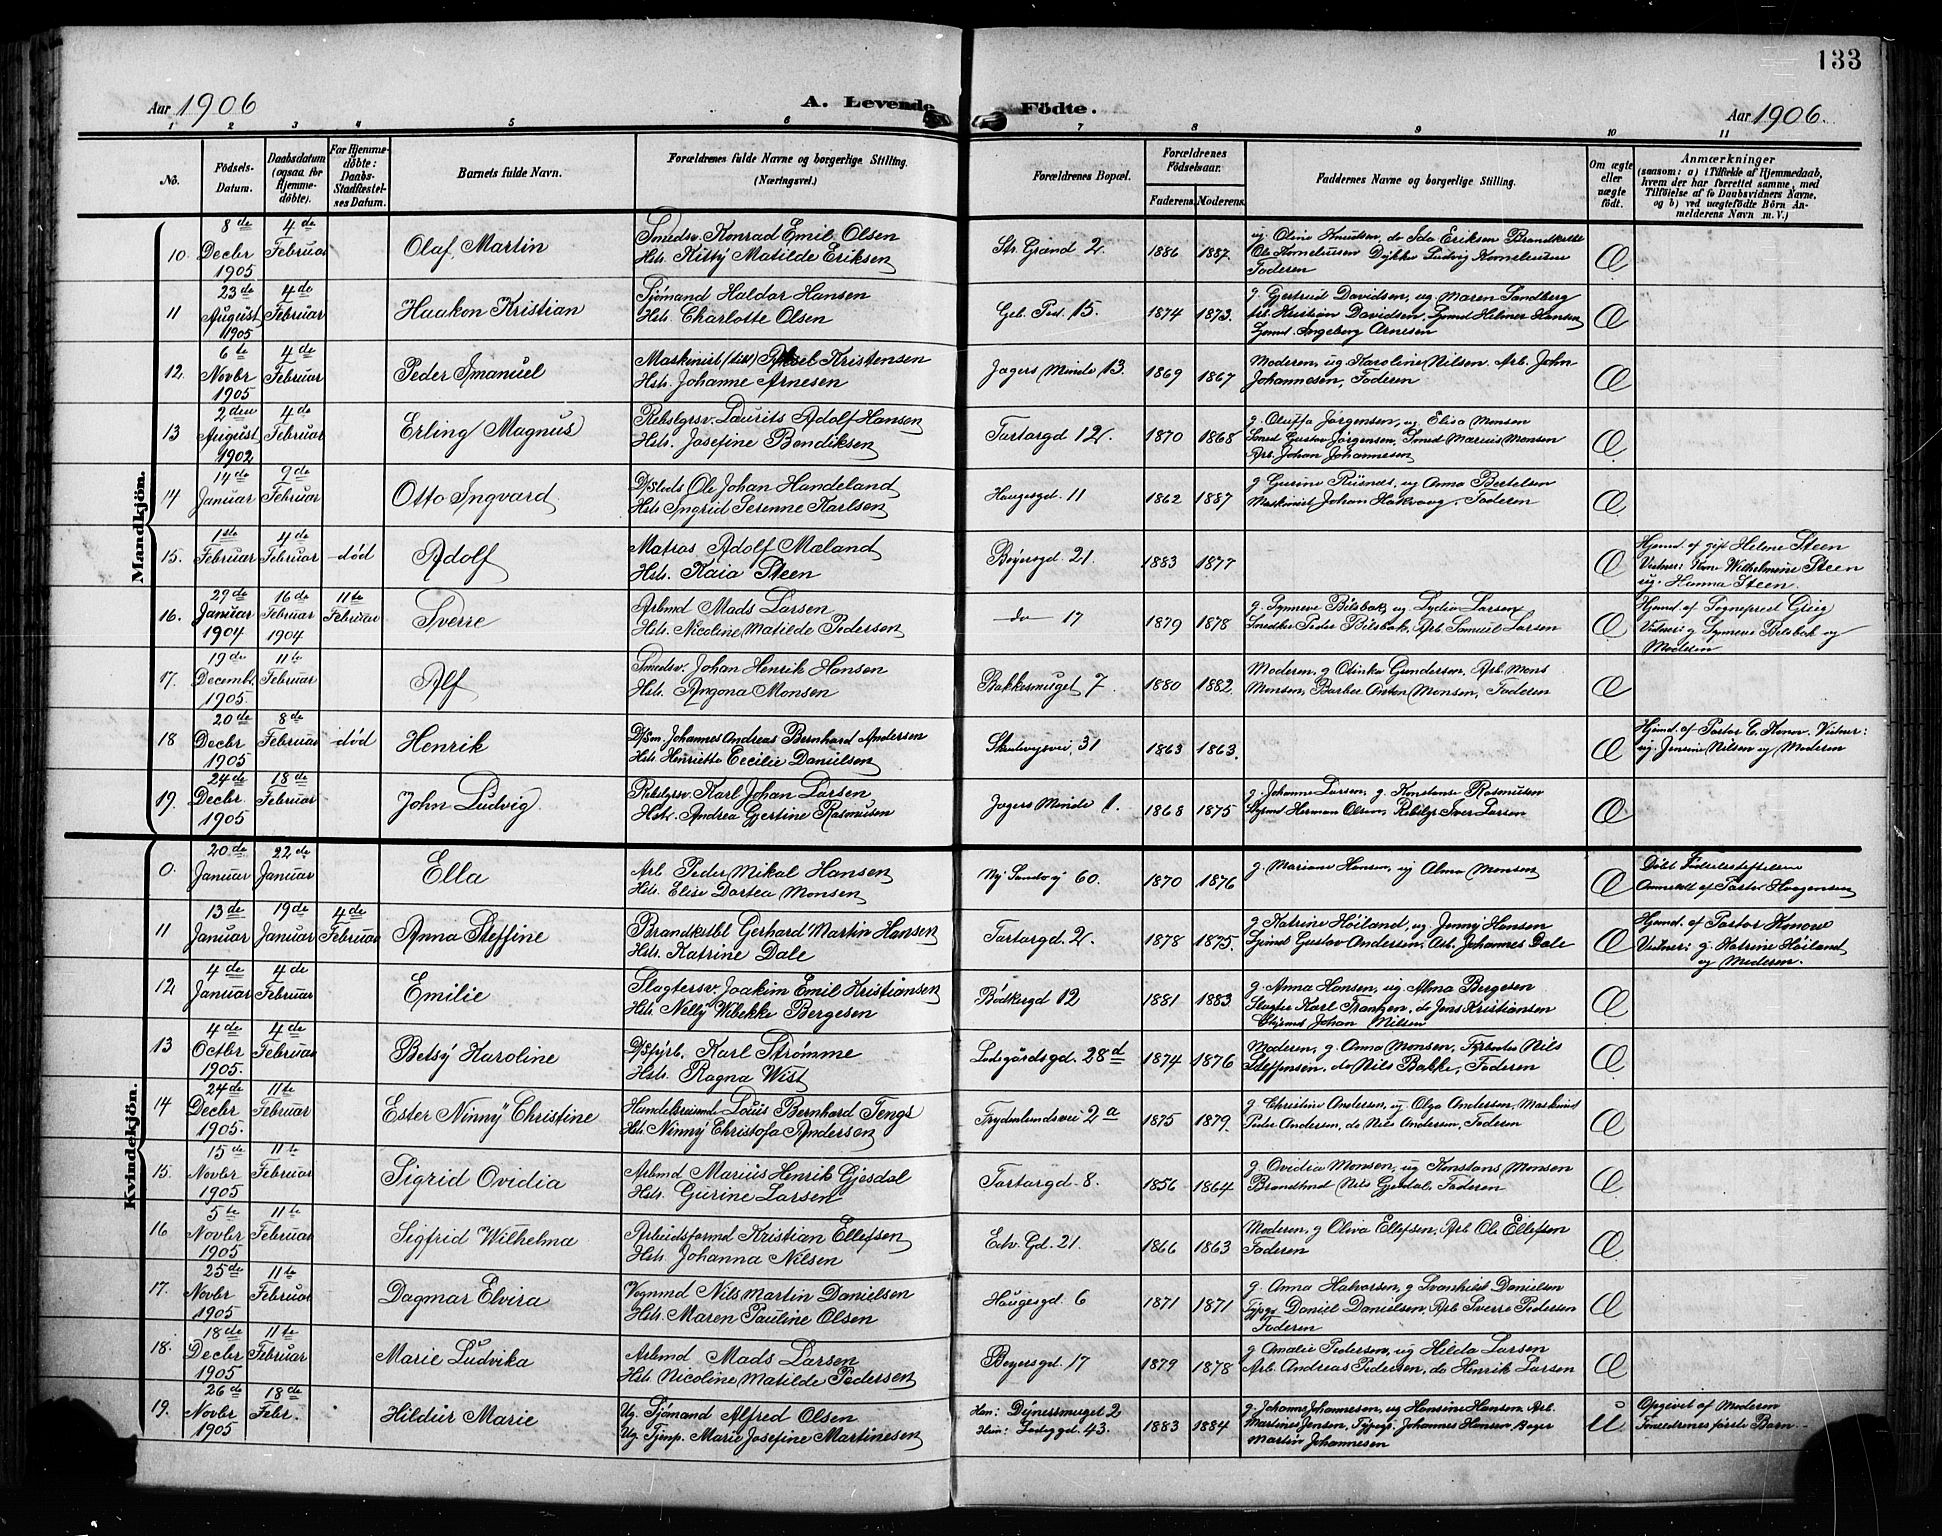 133
Aar 1906
A. Levende Födte.
Aar 1906.
1 2 3 4 5 6 7 8 9 10 11
No.
Födsels-
Datum.
Daabsdatum
(ogsaa for
Hjemme-
döbte).
For Hjemme-
döbte:
Daabs-
Stadfæstel-
ses Datum.
Barnets fulde Navn.
Forældrenes fulde Navne og borgerlige Stilling.
(Næringsvei.)
Forældrenes Bopæl.
Forældrenes
Födselsaar.
Faderens. Moderens.
Faddernes Navne og borgerlige Stilling.
Om ægte
eller
uægte
födt.
Anmærkninger
(saasom: a) i Tilfælde af Hjemmedaab,
hvem der har forrettet samme, med
Tilföielse af to Daabsvidners Navne,
og b) ved uægtefödte Börn An-
melderens Navn m. V.)
Mandkjön.
10. 8de Decbr 1905 4de Februar Olaf Martin
Smedsv. Konrad Emil Olsen
Hst. Kitty Matilde Eriksen
Str. Grand 2. 1886 1887.
ug. Oline Knudsen, do Ida Eriksen
Ole Korneliussen Ludvig Korneliussen
Faderen
Œ
11 23de August 1905 4de Februar Haakon Kristian
Sjömand Haldor Hansen
Hst. Charlotte Olsen
Geb. Ped. 15. 1874 1873.
g. Gjertrud Davidsen, ug Maren Sandberg
Arb. Kristian Davidsen, Sjmd Helmer Hansen
Sjömd. Ingeborg Arnesen
Œ
12. 6te Novbr 1905 4de Februar Peder Imanuel
Kristensen
Hst. Johanne Arnesen
Jagers Minde 13. 1869 1867
Moderen, ug Karoline Nilsen. Arb. John
Johannesen, Faderen
Œ
13 2den August 1902 4de Februar Erling Magnus
Rebslgrsv. Laurits Adolf Hansen
Hst. Josefine Bendiksen
Tartargd 12. 1870 1868
g. Oluffa Jörgensen, ug Elisa Monsen
Smed Gustav Jörgensen, Smed Marius Monsen
Arb. Johan Johannesen
Œ
14 14de Januar 9de Februar Otto Ingvard
Ole Johan Handeland
Hst. Ingrid Serenne Karlsen
Haugesgd. 11 1862 1887
g Gurine ug Anna Bertelsen
Maskinist Johan Faderen
Œ
15. 1ste Februar 4de Februar død Adolf
Matros Adolf Mæland
Hst. Kaia Steen
Beyersgd. 21. 1883 1877
Œ
Hjemd. af gift Helene Steen
Vidner: Wilhelmine Steen
ug. Hanna Steen.
16. 29de Januar 1904 16de Februar 1904 11te Februar Sverre
Arbmd Mads Larsen
Hst. Nicoline Matilde Pedersen
do 17 1879 1878
g. Synneve Bilsbak, ug Lydia Larsen
Peder Bilsbak, Arb. Samuel Larsen
Œ
Hjemd. af Sognepræst Grieg
Vidner: g Synneve Bilsbak og
Moderen
17. 19de Decemb. 1905 11te Februar Alf
Smedsv. Johan Henrik Hansen
Hst. Angona Monsen
Bakkesmuget 7. 1880 1882.
Moderen, g Otinka Gundersen, Arb. Mons
Monsen, Barber Anton Monsen, Faderen
Œ
18 20de Decbr 1905 8de Februar død Henrik
Johannes Andreas Bernhard Andersen
Hst. Henriette Cecilie Danielsen
Skuteviksvei 31 1863 1863.
Œ
Hjemd. af Pastor C. Konow. Vidner:
ug. Jensine Nilsen og Moderen
19. 24de Decbr 1905 18de Februar John Ludvig
Rebslgrsv. Karl Johan Larsen
Hst. Andrea Gjertine Rasmusen
Jagers Minde 1. 1868 1875
g. Johanne Larsen, g. Konstanse Rasmusen
Styrmd Herman Olsen, Rebslgr Iver Larsen
Œ
Kvindekjön.
0. 20de Januar 22de Januar Ella
Arb Peder Mikal Hansen
Hst. Elise Dortea Monsen
Ny Sandvg 60. 1870 1876
g. Mariane Hansen, ug Alma Monsen
Œ
Döbt Födselsstiftelsen
Anmeldt af Pastor Haagensen
11 13de Januar 19de Januar 4de Februar Anna Steffine
Brandkstbl Gerhard Martin Hansen
Hst. Katrine Dale
Tartargd. 2. 1878 1875.
g. Katrine Höiland, ug Jenny Hansen
Sjömd Gustav Andersen, Arb. Johannes Dale
Œ
Hjemd. af Pastor Konow
Vidner: g. Katrine Höiland
og Moderen.
12 4de Januar 4de Februar Emilie
Slagtersv. Joakim Emil Kristiansen
Hst. Nelly Wibekke Bergesen
Bödkergd 12 1881 1883
g. Anna Hansen, ug Alma Bergesen
Slagter Karl Frangen, do Jens Kristiansen
Styrmd Johan Nilsen
Œ
13 4de Octbr 1905. 4de Februar Betsy Karoline
D/Sfyrb. Karl Strømme
Hst. Ragna Wist
Ladegårdsgd. 28d 1874 1876
Moderen, g. Anna Monsen, Fyrböter Nils
Steffensen, do Nils Bakke, Faderen
Œ
14 24de Decbr 1905. 11te Februar Ester Ninny Christine
Handelsreisende Louis Bernhard Tengs
Hst. Ninny Christofa Andersen
Frydenlundsvei 2a 1875 1879.
g. Christine Andersen, ug. Olga Andersen, Maskinist
Peder Andersen, do Nils Andersen, Faderen
Œ
15. 15de Novbr 1905 11te Februar Sigrid Ovidia
Arbmd Marius Henrik Gjesdal
Hst. Gurine Larsen
Tartargd. 8. 1856 1864
g. Ovidia Monsen, ug Konstans Monsen
Brandkmd Nils Gjesdal, Faderen
Œ
16 5te Novbr 1905 11te Februar Sigfrid Wilhelma
Arbeidsformd Kristian Ellefsen
Hst. Johanna Nilsen
Edv. Gd. 21. 1866 1863
Moderen, g Oliva Ellefsen, Arb Ole Ellefsen
Faderen
Œ
17. 25de Novbr 1905 11te Februar Dagmar Elvira
Vognmd Nils Martin Danielsen
Hst. Maren Pauline Olsen
Haugesgd. 6 1871 1871
g. Anna Halvorsen, g Svanhild Danielsen
Typgr Daniel Danielsen, Arb Sverre Pedersen
Faderen
Œ
18. 18de Decbr 1905 11te Februar Marie Ludvika
Arbmd Mads Larsen
Hst. Nicoline Matilde Pedersen
Beyersgd. 17 1879 1878
g Amalie Pedersen, ug Hilda Larsen
Arb. Andreas Pedersen, do Henrik Larsen
Œ
19. 26de Novbr 1905 18de Febr. Hildur Marie
Ug. Sjömand Alfred Olsen
Ug. Tjenp. Marie Josefine Martinesen
Han: Dynesmuget 2
Hun: Ladeggd. 43. 1883 1884
g. Johanne Johannesen, ug Hansine Hansen. Arb.
Martines Jensen, Typogr. Johannes Hansen, Bager
Martin Johannesen
U
Opgivet af Moderen
Forældrenes første Barn